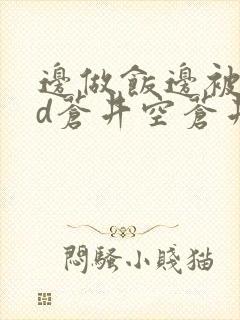 邊做飯邊被
d蒼井空蒼井
悶騷小賤猫